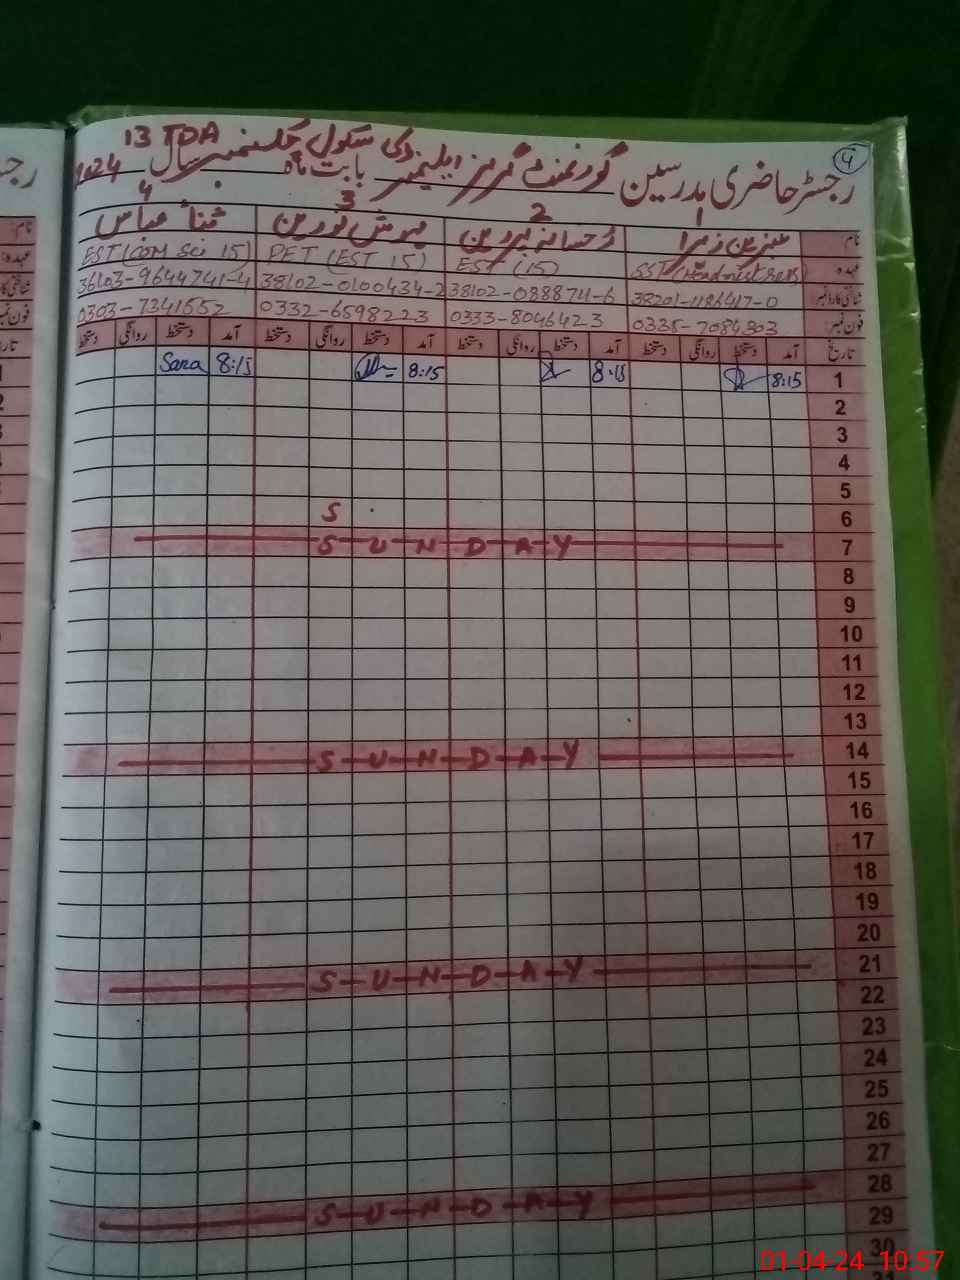 4
رجسٹر حاضری مدرسین گورنمنٹ گرلز ایلیمنٹری سکول چک نمبر 13 TDA
بابت ماہ سال 2024
نام 1 2 مہوش نورین 3 ثناء عباس 4
عہدہ SST (Headmistress) EST (15) PET (EST 15) EST (COM Sci 15)
شناختی کارڈ نمبر 38201-1186417-0 38102-0888874-6 38102-0100434-2 36103-9644741-4
فون نمبر: 0335-7084303 0333-8046423 0332-6598223 0303-7341552
تاریخ آمد دستخط روانگی دستخط آمد دستخط روانگی دستخط آمد دستخط روانگی دستخط آمد دستخط روانگی دستخط
1 8:15 8:15 8:15 8:15 Sana
2
3
4
5
6 S
7 S-U-N-D-A-Y
8
9
10
11
12
13
14 S-U-N-D-A-Y
15
16
17
18
19
20
21 S-U-N-D-A-Y
22
23
24
25
26
27
28 S-U-N-D-A-Y
29
30
01-04-24 10:57